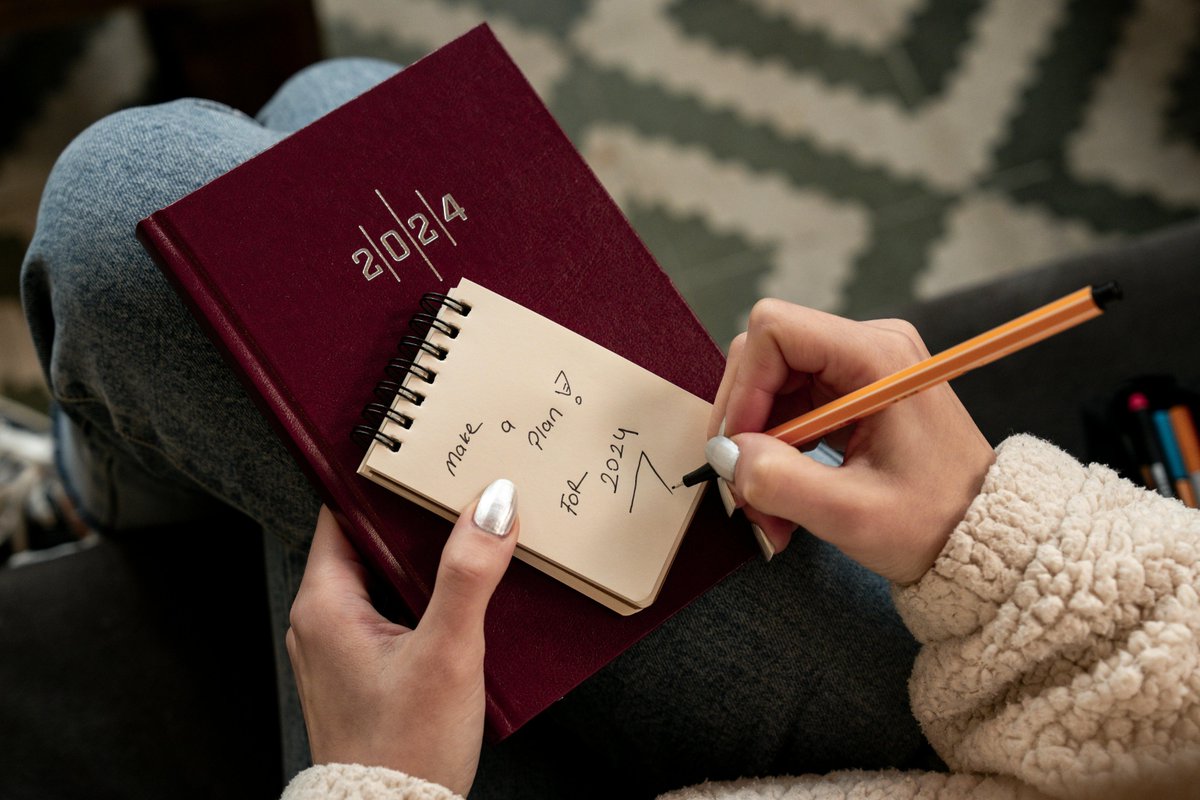 2024
Make a plan!
FOR 2024